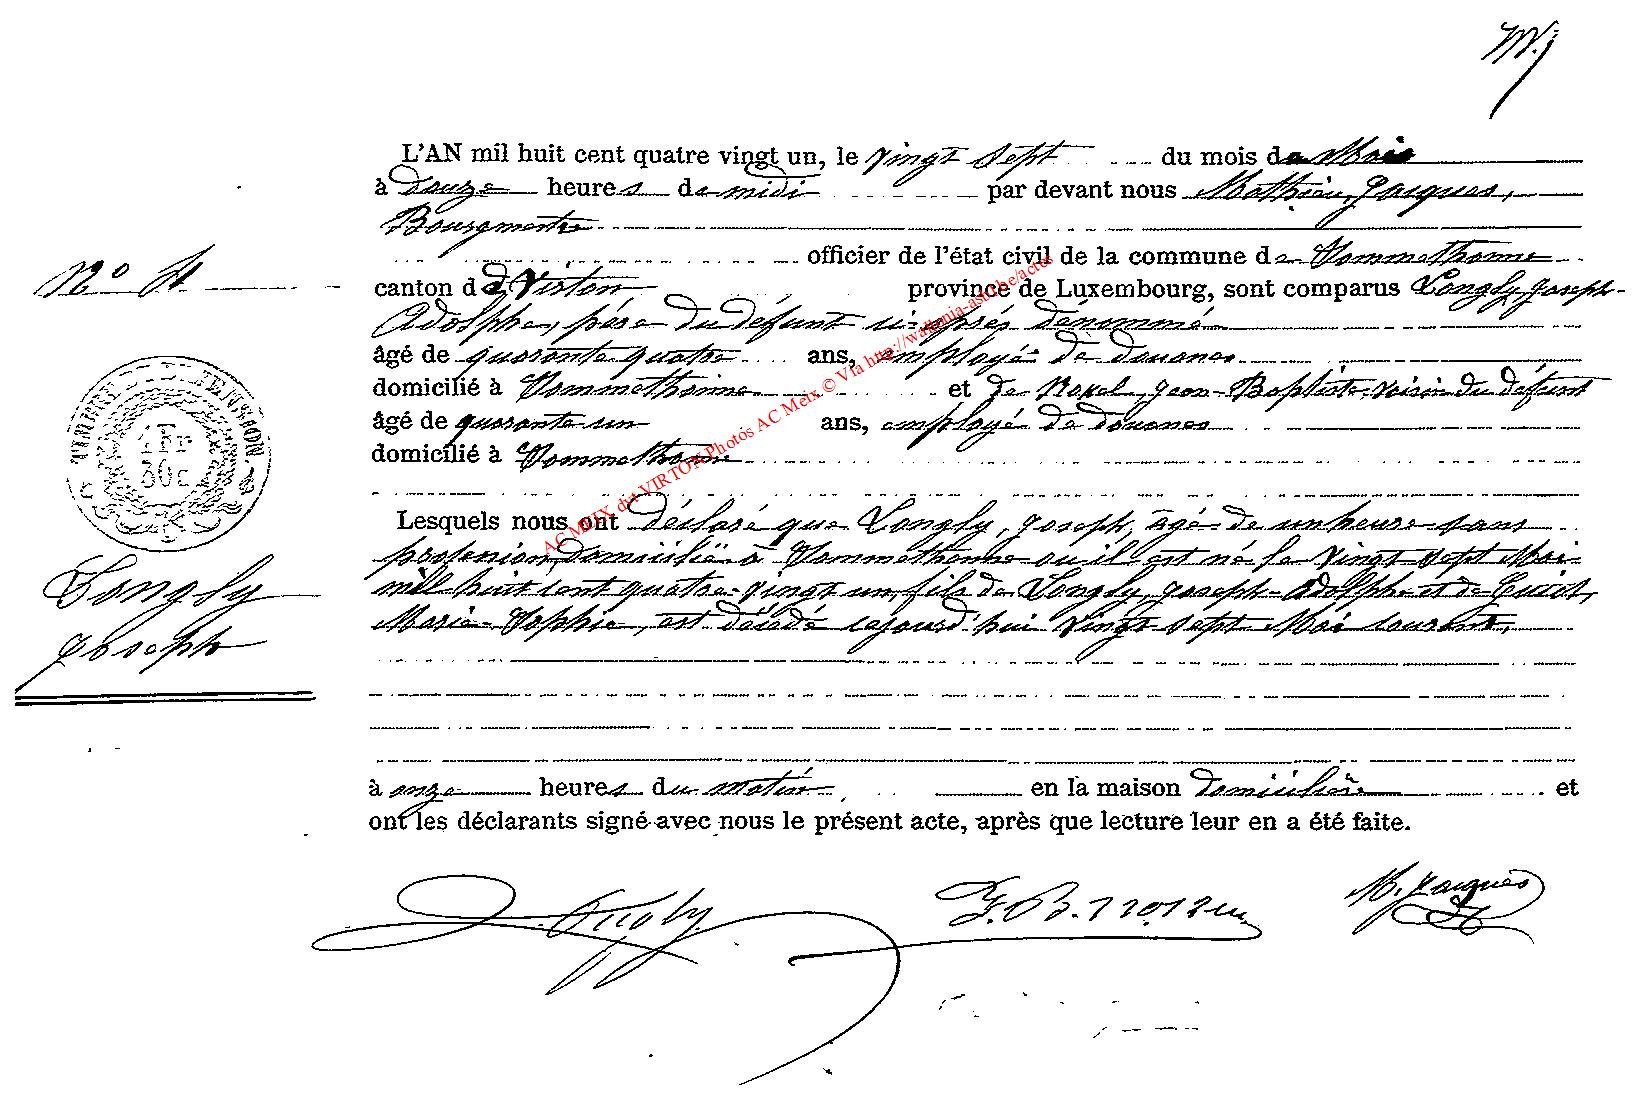 M. J.
L'AN mil huit cent quatre vingt un, le vingt sept du mois de Mai
à douze heures de midi par devant nous Mathieu, Jacques,
Bourgmestre
officier de l'état civil de la commune de Sommethonne
N°
canton de Virton province de Luxembourg, sont comparus Longly, Joseph-
Adolphe, père du défunt ci-après dénommé
âgé de quarante quatre ans, employé de douanes
domicilié à Sommethonne et de Jean-Baptiste, voisin du défunt
âgé de quarante un ans, employé de douanes
domicilié à Sommethonne
Lesquels nous ont déclaré que Longly, Joseph, âgé de un heure sans
profession, domicilié à Sommethonne ou il est né le vingt sept Mai
mill huit cent quatre-vingt un, fils de Longly, Joseph-Adolphe et de
Marie-Sophie, est décédé cejourd'hui vingt sept Mai courant,
Longly
Joseph
à onze heures du matin en la maison domicilière et
ont les déclarants signé avec nous le présent acte, après que lecture leur en a été faite.
M. Jacques
AC MEIX dvt VIRTON Photos AC Meix © Via http://wallonia-asbl.be/actes